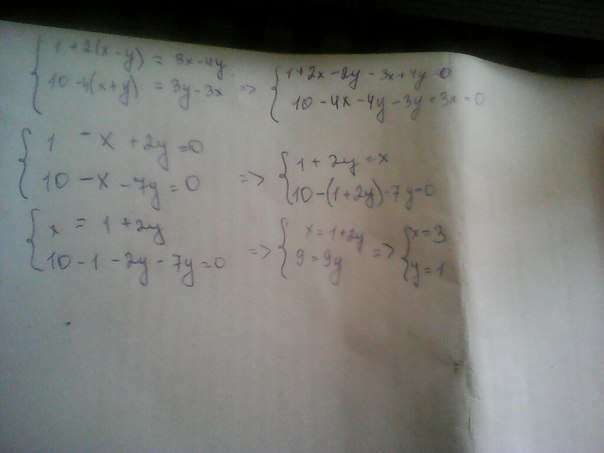 { 1 + 2(x - y) = 3x - 4y
{ 10 - 4(x + y) = 3y - 3x => { 1 + 2x - 2y - 3x + 4y = 0
{ 10 - 4x - 4y - 3y + 3x = 0
{ 1 - x + 2y = 0
{ 10 - x - 7y = 0 => { 1 + 2y = x
{ 10 - (1 + 2y) - 7y = 0
{ x = 1 + 2y
{ 10 - 1 - 2y - 7y = 0 => { x = 1 + 2y
{ 9 = 9y => { x = 3
{ y = 1